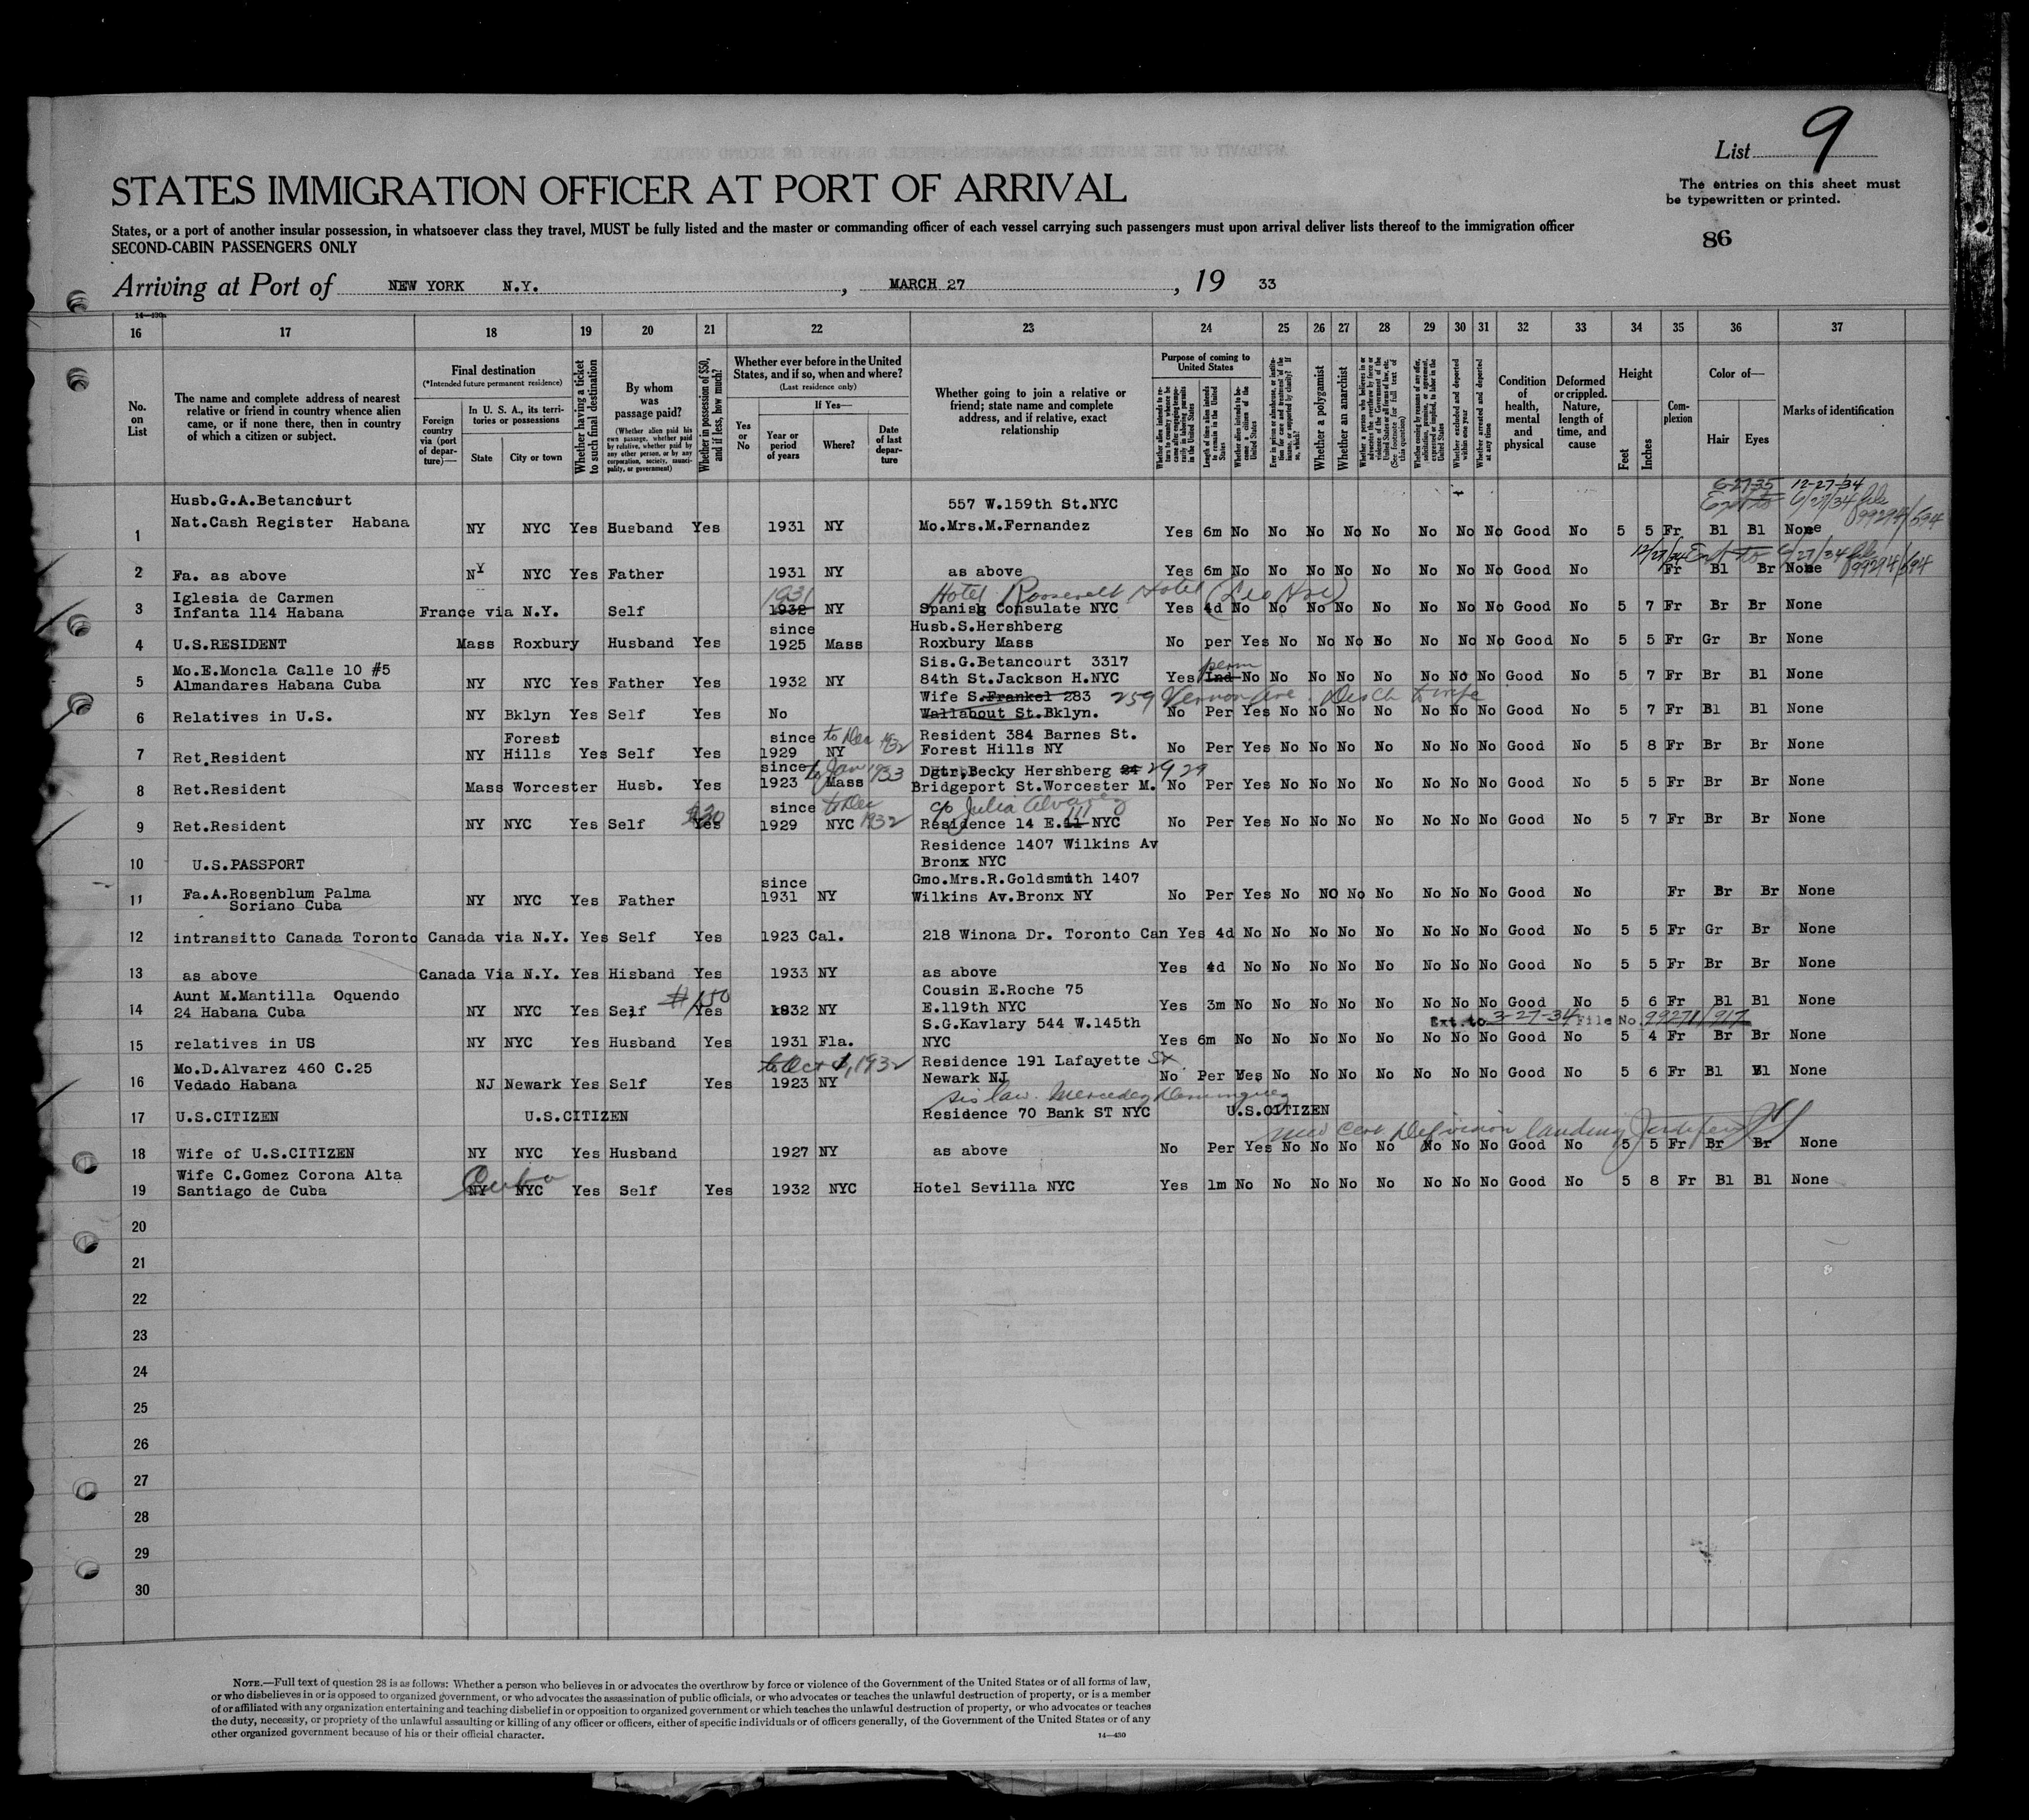 List 9
STATES IMMIGRATION OFFICER AT PORT OF ARRIVAL
The entries on this sheet must
be typewritten or printed.
States, or a port of another insular possession, in whatsoever class they travel, MUST be fully listed and the master or commanding officer of each vessel carrying such passengers must upon arrival deliver lists thereof to the immigration officer
SECOND-CABIN PASSENGERS ONLY
86
Arriving at Port of NEW YORK N.Y., MARCH 27, 19 33
14—430
16 17 18 19 20 21 22 23 24 25 26 27 28 29 30 31 32 33 34 35 36 37
No. on List
The name and complete address of nearest relative or friend in country whence alien came, or if none there, then in country of which a citizen or subject.
Final destination
(*Intended future permanent residence)
Foreign country via (port of departure)—
In U. S. A., its territories or possessions
State
City or town
Whether having a ticket to such final destination
By whom was passage paid?
(Whether alien paid his own passage, whether paid by relative, whether paid by any other person, or by any corporation, society, municipality, or government)
Whether in possession of $50, and if less, how much?
Whether ever before in the United States, and if so, when and where?
(Last residence only)
Yes or No
If Yes—
Year or period of years
Where?
Date of last departure
Whether going to join a relative or friend; state name and complete address, and if relative, exact relationship
Purpose of coming to United States
Whether a polygamist
Whether an anarchist
Whether excluded and deported within one year
Whether arrested and deported at any time
Condition of health, mental and physical
Deformed or crippled. Nature, length of time, and cause
Height
Feet
Inches
Complexion
Color of—
Hair
Eyes
Marks of identification
6-27-35 12-27-34
Husb.G.A.Betancourt 557 W.159th St.NYC
1 Nat.Cash Register Habana NY NYC Yes Husband Yes 1931 NY Mo.Mrs.M.Fernandez Yes 6m No No No No No No No No Good No 5 5 Fr Bl Bl None
12/27/34 Ext to 6/27/34 file 99294/594
2 Fa. as above NY NYC Yes Father 1931 NY as above Yes 6m No No No No No No No No Good No Fr Bl Br None
Iglesia de Carmen 1931 Hotel Roosevelt Hotel
3 Infanta 114 Habana France via N.Y. Self 1932 NY Spanish Consulate NYC Yes 4d No No No No No No No No Good No 5 7 Fr Br Br None
since Husb.S.Hershberg
4 U.S.RESIDENT Mass Roxbury Husband Yes 1925 Mass Roxbury Mass No per Yes No No No No No No No Good No 5 5 Fr Gr Br None
Mo.E.Moncla Calle 10 #5 Sis.G.Betancourt 3317 perm
5 Almandares Habana Cuba NY NYC Yes Father Yes 1932 NY 84th St.Jackson H.NYC Yes Ind No No No No No No No No Good No 5 7 Fr Br Bl None
Wife S.Frankel 283 259 Vernon Ave. Disch to wife
6 Relatives in U.S. NY Bklyn Yes Self Yes No Wallabout St.Bklyn. No Per Yes No No No No No No No Good No 5 7 Fr Bl Bl None
Forest since to Dec 1932 Resident 384 Barnes St.
7 Ret.Resident NY Hills Yes Self Yes 1929 NY Forest Hills NY No Per Yes No No No No No No No Good No 5 8 Fr Br Br None
since to Jan 1933 Dgtr.Becky Hershberg 24 29 29
8 Ret.Resident Mass Worcester Husb. Yes 1923 Mass Bridgeport St.Worcester M. No Per Yes No No No No No No No Good No 5 5 Fr Br Br None
$30 since to Dec 1932 c/o Julia Alvarez 111
9 Ret.Resident NY NYC Yes Self Yes 1929 NYC Residence 14 E.11 NYC No Per Yes No No No No No No No Good No 5 7 Fr Br Br None
Residence 1407 Wilkins Av
10 U.S.PASSPORT Bronx NYC
Fa.A.Rosenblum Palma since Gmo.Mrs.R.Goldsmith 1407
11 Soriano Cuba NY NYC Yes Father 1931 NY Wilkins Av.Bronx NY No Per Yes No NO No No No No No Good No Fr Br Br None
12 intransitto Canada Toronto Canada via N.Y. Yes Self Yes 1923 Cal. 218 Winona Dr. Toronto Can Yes 4d No No No No No No No No Good No 5 5 Fr Gr Br None
13 as above Canada Via N.Y. Yes Hisband Yes 1933 NY as above Yes 4d No No No No No No No No Good No 5 5 Fr Br Br None
Aunt M.Mantilla Oquendo $150 Cousin E.Roche 75
14 24 Habana Cuba NY NYC Yes Self Yes 1932 NY E.119th NYC Yes 3m No No No No No No No No Good No 5 6 Fr Bl Bl None
S.G.Kavlary 544 W.145th Ext.to 3-27-34 File No. 99271/917
15 relatives in US NY NYC Yes Husband Yes 1931 Fla. NYC Yes 6m No No No No No No No No Good No 5 4 Fr Br Br None
Mo.D.Alvarez 460 C.25 to Oct 1, 1932 Residence 191 Lafayette St.
16 Vedado Habana NJ Newark Yes Self Yes 1923 NY Newark NJ No Per Yes No No No No No No No Good No 5 6 Fr Bl Bl None
sis law. Mercedes Dominguez
17 U.S.CITIZEN U.S.CITIZEN Residence 70 Bank ST NYC U.S.CITIZEN
18 Wife of U.S.CITIZEN NY NYC Yes Husband 1927 NY as above No Per Yes No No No No No No No Good No 5 5 Fr Br Br None
Wife C.Gomez Corona Alta Cuba
19 Santiago de Cuba NY NYC Yes Self Yes 1932 NYC Hotel Sevilla NYC Yes 1m No No No No No No No No Good No 5 8 Fr Bl Bl None
20
21
22
23
24
25
26
27
28
29
30
NOTE.—Full text of question 28 is as follows: Whether a person who believes in or advocates the overthrow by force or violence of the Government of the United States or of all forms of law,
or who disbelieves in or is opposed to organized government, or who advocates the assassination of public officials, or who advocates or teaches the unlawful destruction of property, or is a member
of or affiliated with any organization entertaining and teaching disbelief in or opposition to organized government or which teaches the unlawful destruction of property, or who advocates or teaches
the duty, necessity, or propriety of the unlawful assaulting or killing of any officer or officers, either of specific individuals or of officers generally, of the Government of the United States or of any
other organized government because of his or their official character. 14—430